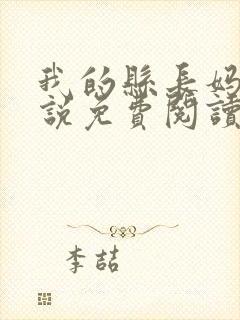 我的縣長媽
說免費閱讀
李喆